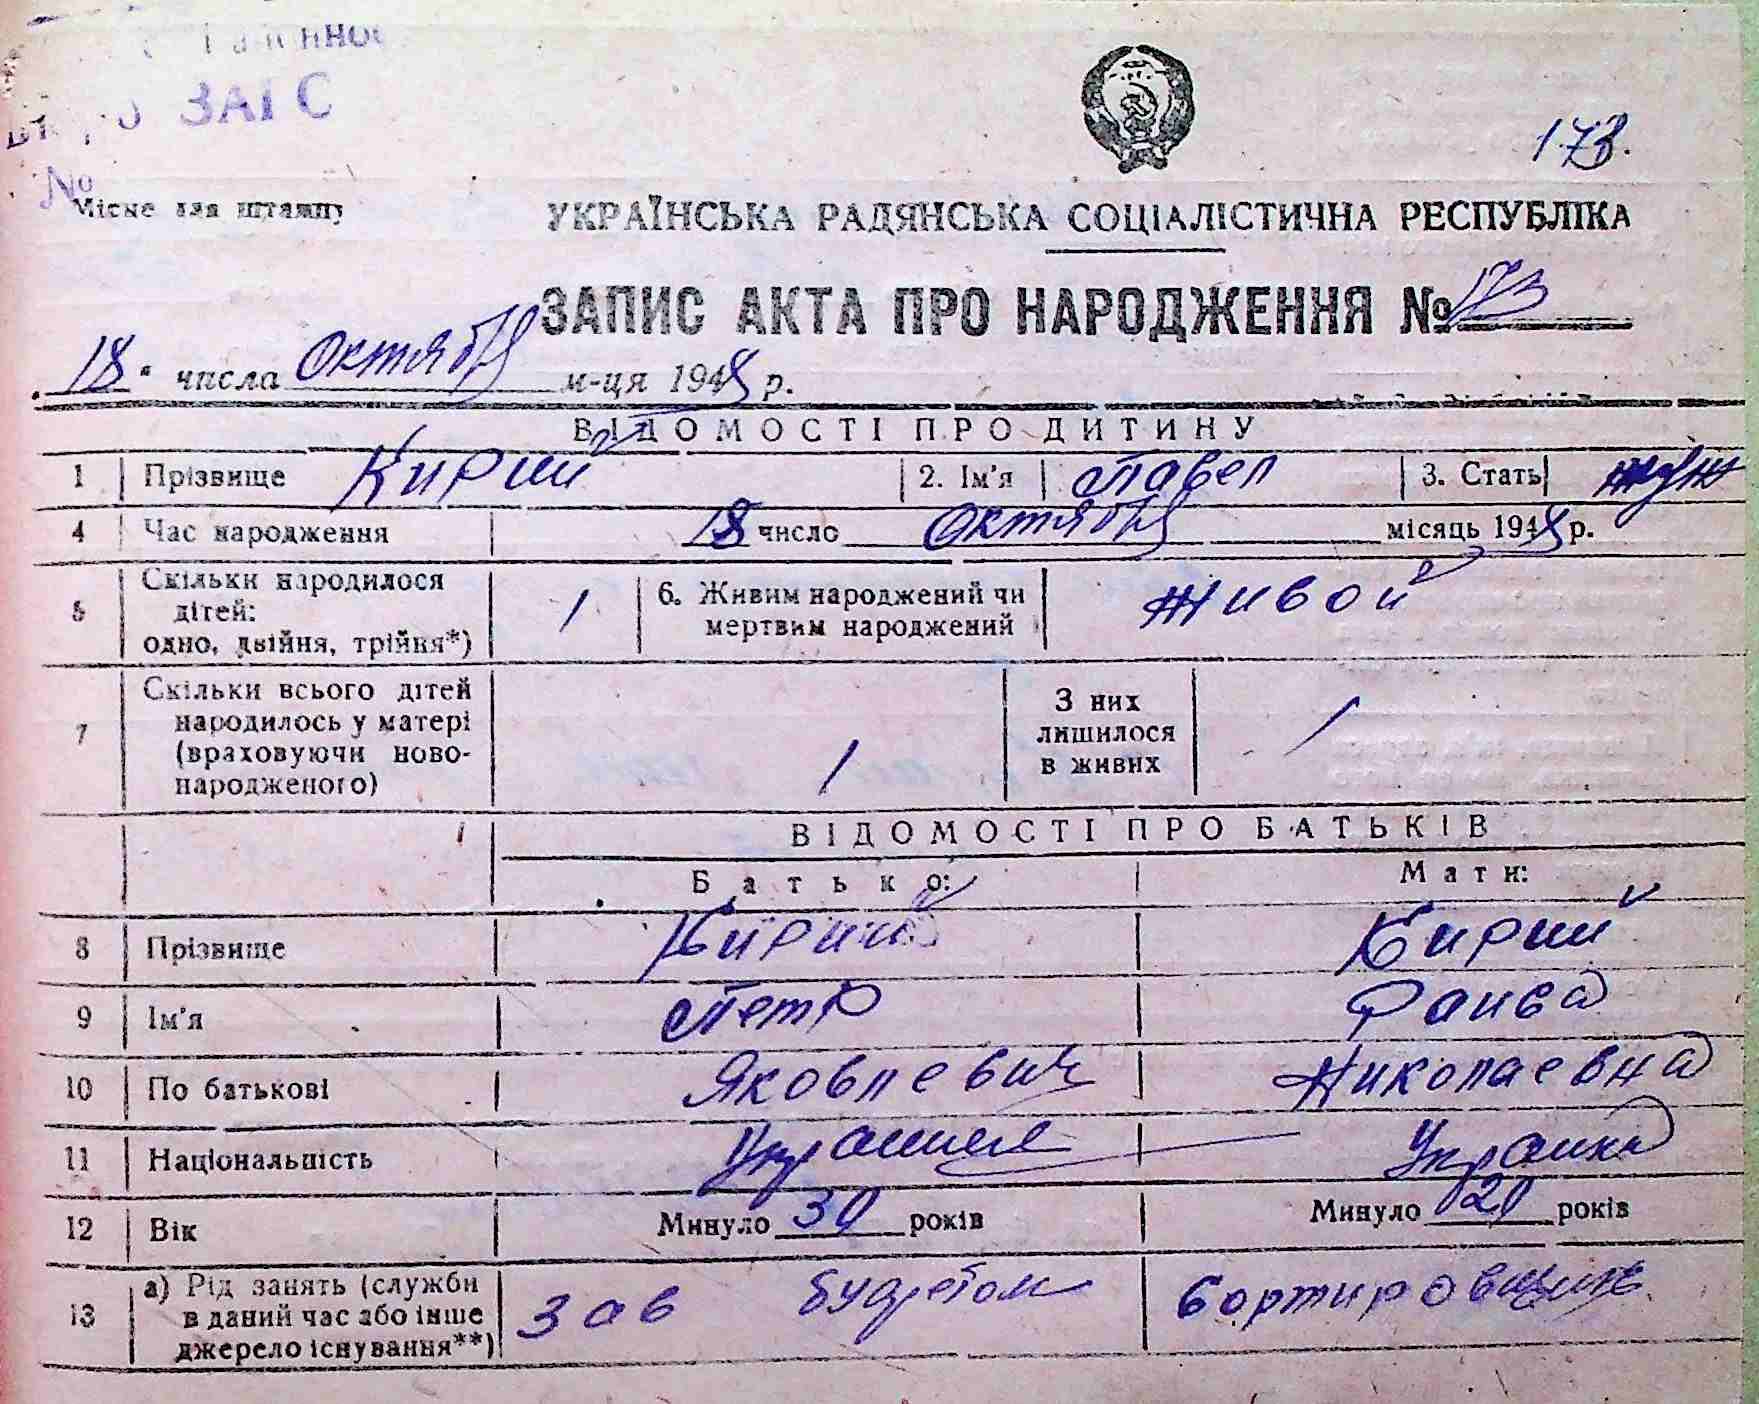 ЗАГС
№
173.
Місце для штампу
УКРАЇНСЬКА РАДЯНСЬКА СОЦІАЛІСТИЧНА РЕСПУБЛІКА
ЗАПИС АКТА ПРО НАРОДЖЕННЯ № 173
18 числа Октября м-ця 1948 р.
ВІДОМОСТІ ПРО ДИТИНУ
1 Прізвище Кирий 2. Ім'я Павел 3. Стать муж
4 Час народження 18 число Октября місяць 1948 р.
5 Скільки народилося
дітей:
одно, двійня, трійня*) 1 6. Живим народжений чи
мертвим народжений Живой
7 Скільки всього дітей
народилось у матері
(враховуючи ново-
народженого) 1 З них
лишилося
в живих 1
ВІДОМОСТІ ПРО БАТЬКІВ
Батько: Мати:
8 Прізвище Кирий Кирий
9 Ім'я Петр Раиса
10 По батькові Яковлевич Николаевна
11 Національність Украинец Украинка
12 Вік Минуло 30 років Минуло 20 років
13 а) Рід занять (служби
в даний час або інше
джерело існування**) Зав буфетом Сортировщик